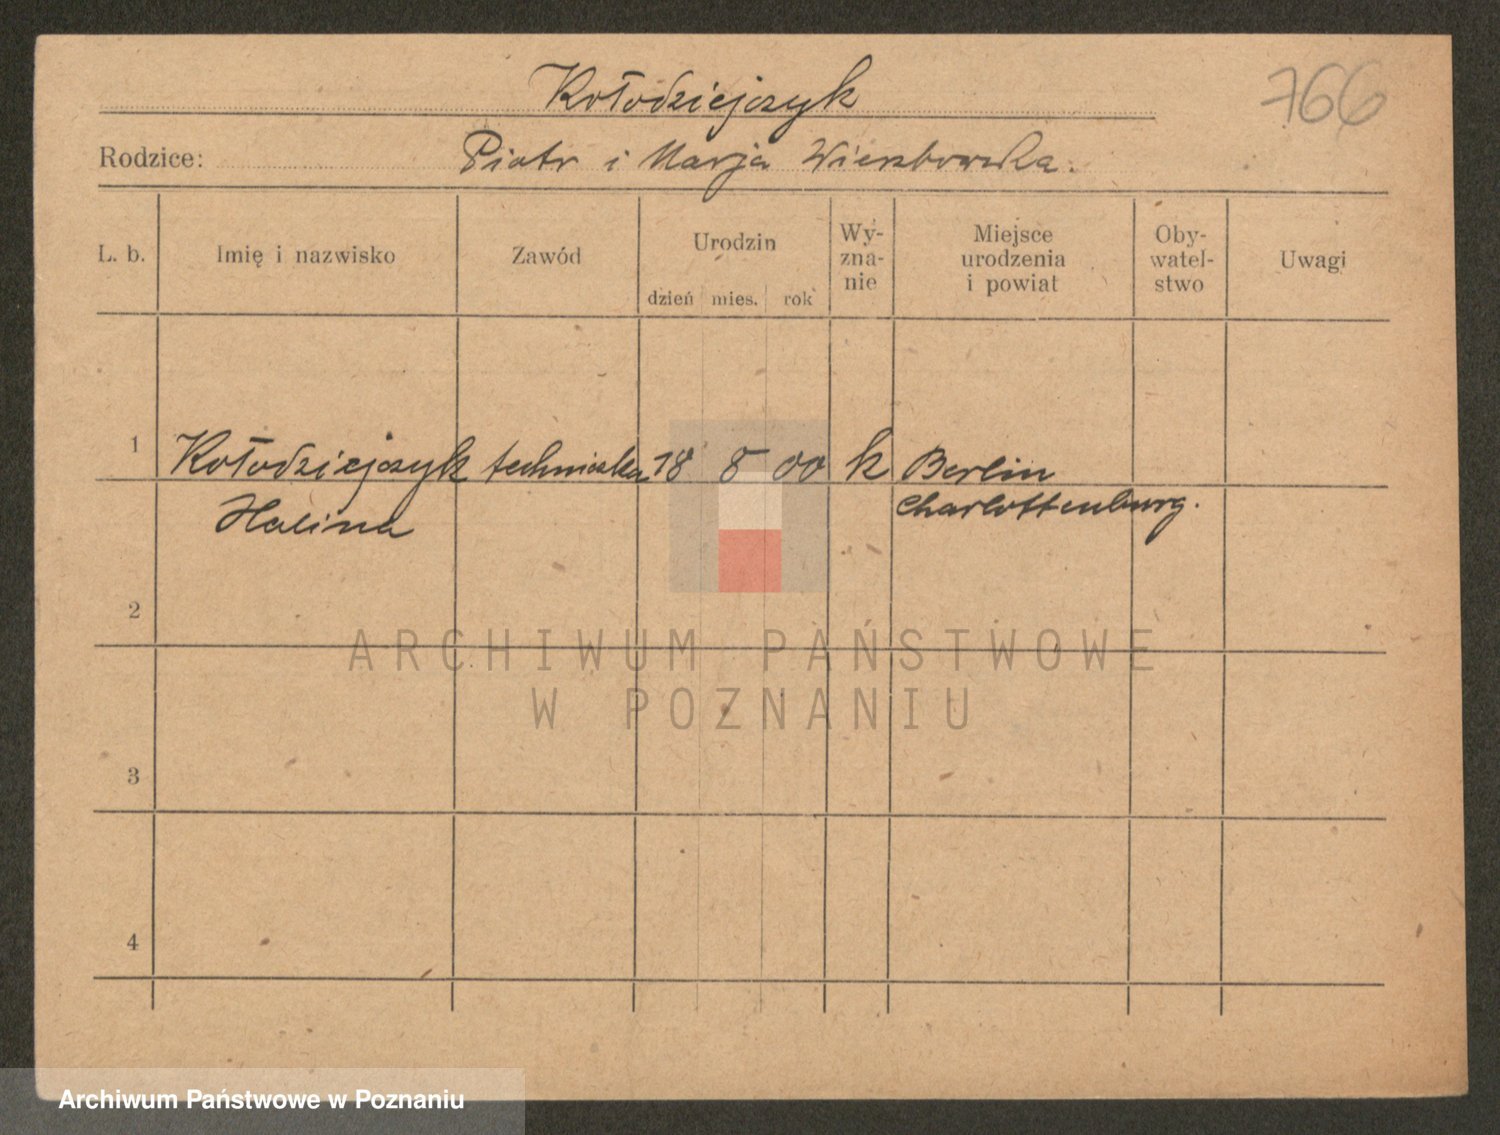 Kołodziejczyk
766
Rodzice: Piotr i Marja Wierzbowska.
L. b. Imię i nazwisko Zawód Urodzin dzień mies. rok Wy-zna-nie Miejsce urodzenia i powiat Oby-watel-stwo Uwagi
1 Kołodziejczyk techniczka 18 8 00 k Berlin
Halina Charlottenburg.
2
ARCHIWUM PAŃSTWOWE
W POZNANIU
3
4
Archiwum Państwowe w Poznaniu